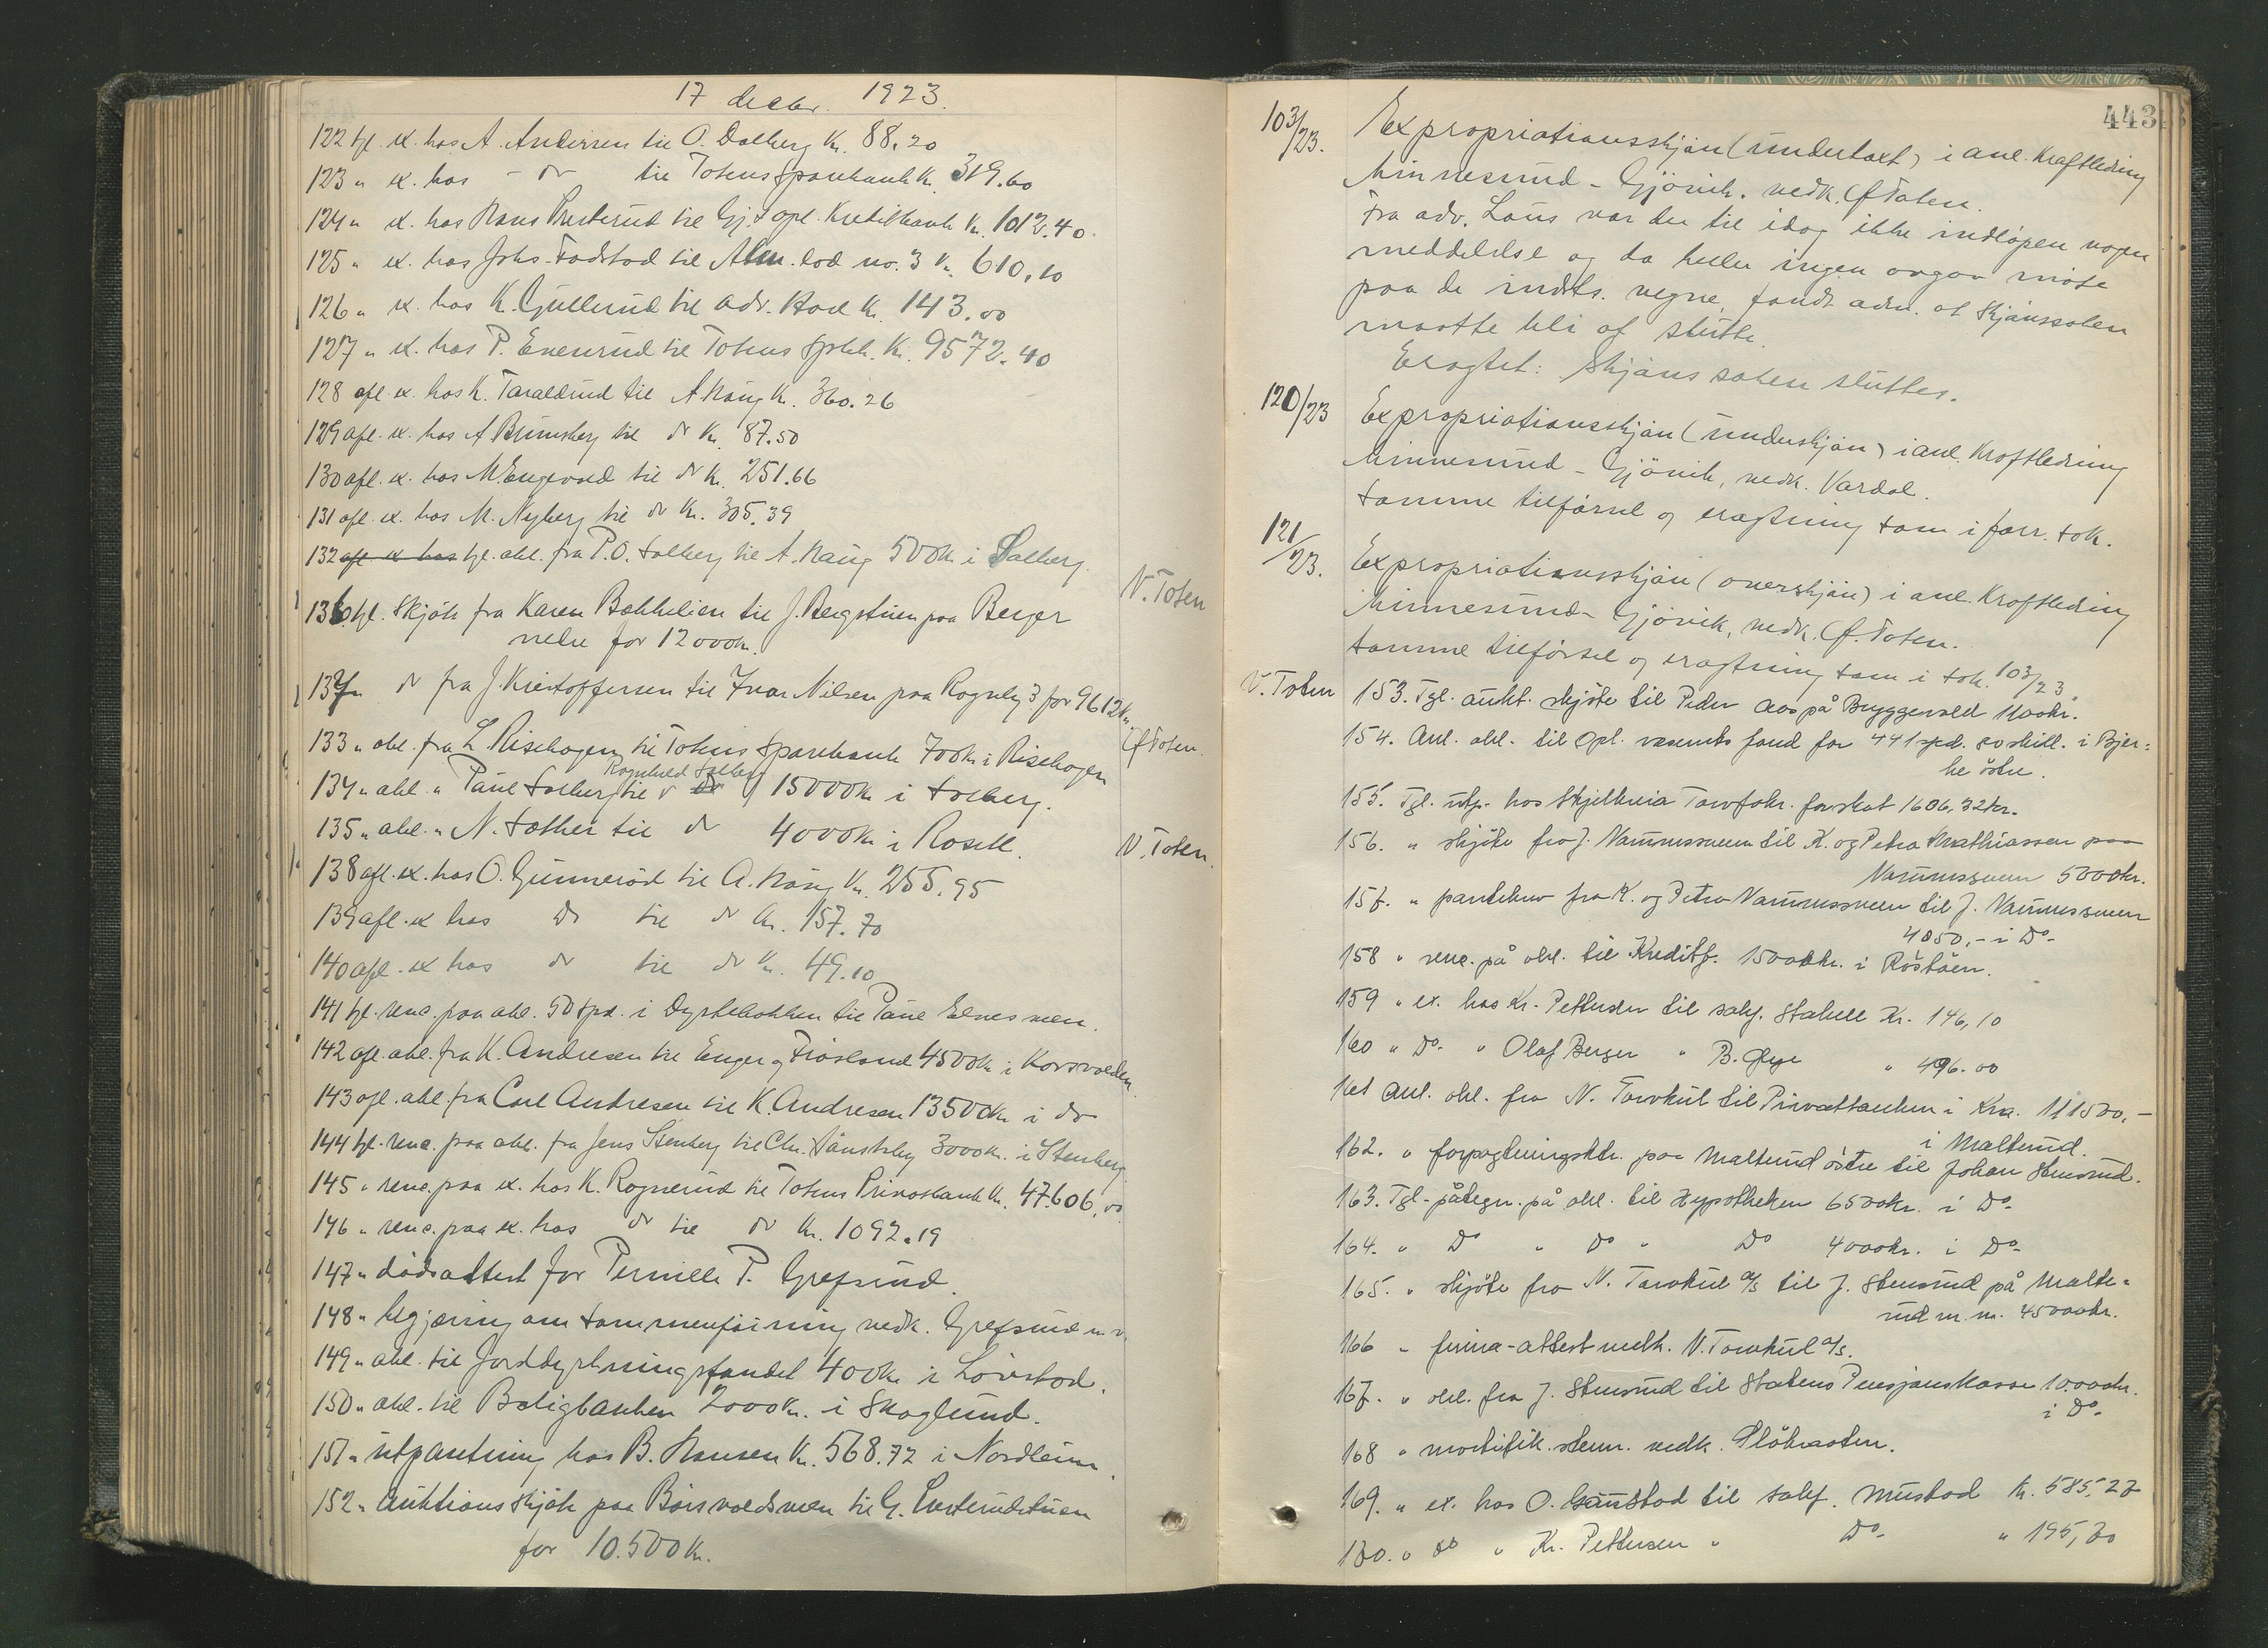 17 decbr. 1923.
122 tgl. ex. hos A. Andersen til O. Dalberg Kr. 88.20
123 " ex. hos - do til Totens Sparebank Kr. 319.60
124 " ex. hos Hans Presterud til Gj. & opl. Kreditbank Kr. 1012.40.
125 " ex. hos Johs. Fodstad til Alm. lod no. 3 Kr. 610.10
126 " ex. hos K. Gullerud til adv. Hoel Kr. 143.00
127 " ex. hos P. Evenrud til Totens Spbk. Kr. 9572.40
128 afl. ex. hos K. Taralrud til A. Haug Kr. 360.26
129 afl. ex. hos A. Brunsberg til do Kr. 87.50
130 afl. ex. hos M. Engevold til do Kr. 251.66
131 afl. ex. hos M. Nyberg til do Kr. 305.39
132 afl. ex. hos tgl. obl. fra P.O. Solberg til A. Haug 500 Kr i Solberg.
V. Toten
136 tgl. Skjöte fra Karen Bakkelien til J. Bergstuen paa Berger
nedre for 12000 kr.
137 " do fra J. Kristoffersen til Ivar Nilsen paa Rognly 3 for 9612 Kr.
133 " obl. fra L. Risehagen til Totens Sparebank 700 Kr i Risehagen
Ø. Toten.
Ragnhild Solberg
134 " obl. " Paul Solberg til do 15000 Kr i Solberg.
135 " obl. " N. Sæther til do 4000 Kr i Rosell.
V. Toten.
138 afl. ex. hos O. Gunneröd til A. Haug Kr. 255.95
139 afl. ex hos do til do Kr. 157.70
140 afl. ex hos do til do Kr. 49.10
141 tgl. renc. paa obl. 50 Spd. i Dyrkebakken til Paul Elvesveen.
142 afl. obl. fra K. Andresen til Enger og Frösland 4500 Kr i Korsvolden
143 afl. obl. fra Carl Andresen til K. Andresen 13500 Kr i do
144 tgl. renc. paa obl. fra Jens Stenberg til Chr. Sönsteby 3000 Kr. i Stenberg.
145 " renc. paa ex. hos K. Rognerud til Totens Privatbank Kr. 47.606.00
146 " renc. paa ex. hos do til do Kr. 1092.19
147 " dödsattest for Pernille P. Grefsrud.
148 " begjæring om sammenföining vedk. Grefsrud m.v.
149 " obl. til Jorddyrkningsfondet 400 Kr i Lövstad.
150 " obl. til Boligbanken 2000 Kr. i Skoglund.
151 " utpantning hos B. Hansen Kr. 568.72 i Nordheim.
152 " Auktionsskjöte paa Börsvoldsveen til G. Evsterudstuen
for 10.500 Kr.
443
103/23. Expropriationsskjön (undertaxt) i anl. Kraftledning
Minnesund - Gjövik. vedk. Ø. Toten.
Fra adv. Lous var der til idag ikke indlöpen nogen
meddelelse og da heller ingen avgav möte
paa de indsts. vegne, fandt adm. at skjönssaken
maatte bli at slutte.
Eragtet: Skjönssaken sluttes.
120/23 Expropriationsskjön (underskjön) i anl. Kraftledning
Minnesund - Gjövik, vedk. Vardal.
Samme tilförsel og eragtning som i forr. sak.
121/23. Expropriationsskjön (overskjön) i anl. Kraftledning
Minnesund - Gjövik, vedk. Ø. Toten.
Samme tilförsel og eragtning som i sak. 103/23.
V. Toten 153. Tgl. aukt. skjöte til Peder Aas på Bryggevold 1100 kr.
154. Anl. obl. til Opl. væsenets fond for 441 spd. 80 skill. i Bjer=
ke östre.
155. Tgl. utp. hos Skjelbreia Torvfabr. for skat 1606,32 kr.
156. " skjöte fra J. Narumsveen til K. og Petra Mathiassen paa
Narumsveen 5000 kr.
157. " pantebrev fra K. og Petra Narumsveen til J. Narumsveen
4050,- i Do
158 " renc. på obl. til Kreditf. 15000 kr. i Röståen.
159 " ex. hos Kr. Pettersen til sakf. Stabell Kr. 146,10
160 " Do " Olaf Berger " B. Glye " 496.00
161 Anl. obl. fra N. Torvkul til Privatbanken i Kra. 111500,-
i Malterud.
162. " forpagtningsktr. paa Malterud östre til Johan Stensrud.
163. Tgl. påtegn. på obl. til Hypotheken 6500 kr. i Do
164. " Do " Do " Do 4000 kr. i Do
165. " skjöte fra N. Torvkul A/S til J. Stensrud på Malte=
rud m. m. 45000 kr.
166 " firma-attest vedk. N. Torvkul A/S.
167. " obl. fra J. Stensrud til Statens Pensjonskasse 10.000 kr.
i Do
168 " mortifik. stevn. vedk. Plöhaaten.
169. " ex. hos O. Gaustad til sakf. Mustad Kr. 585,27
170. " do " Kr. Pettersen " Do " 195,70